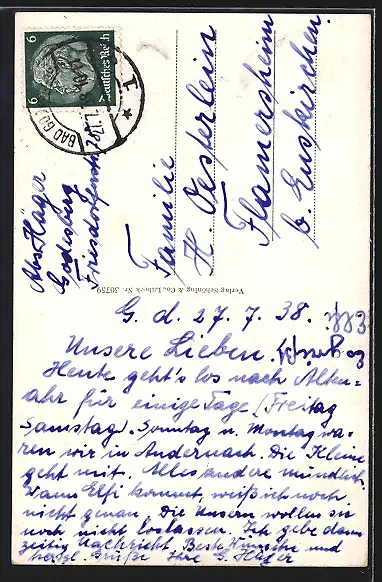 6
6
Deutsches Reich
BAD GO
1
Familie
H. Oesterlein
Flamersheim
b. Euskirchen.
Abs. Häger
Godesburg
Friesdorferstr.
Verlag Schöning & Co., Lübeck Nr. 30759
G. d. 27. 7. 38.
Unsere Lieben.
Heute geht's los nach Alten-
ahr für einige Tage (Freitag
Samstag). Sonntag u. Montag wa-
ren wir in Andernach. Die Kleine
geht mit. Alles andere mündlich.
Wann Elfi kommt, weiß ich noch
nicht genau. Die Unsern wollen sie
noch nicht loslassen. Ich gebe dann
zeitig Nachricht. Beste Wünsche und
herzl. Grüße Ihre E. Häger